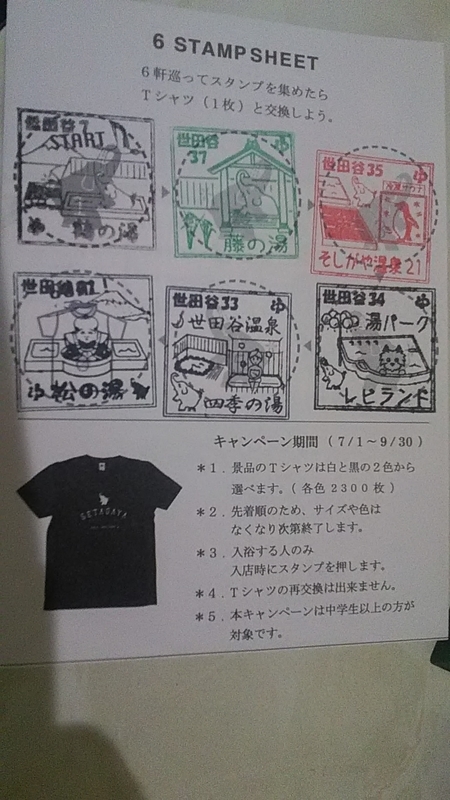 6 STAMP SHEET
6軒巡ってスタンプを集めたら
Tシャツ（1枚）と交換しよう。
世田谷7
START
の湯
世田谷
37
ゆ
藤の湯
世田谷35
ゆ
冷凍サウナ
そしがや温泉21
世田谷
松の湯
世田谷33
ゆ
世田谷温泉
四季の湯
世田谷34
ゆ
湯パーク
レビランド
キャンペーン期間（7/1～9/30）
＊1．景品のTシャツは白と黒の2色から
選べます。（各色2300枚）
＊2．先着順のため、サイズや色は
なくなり次第終了します。
＊3．入浴する人のみ
入店時にスタンプを押します。
＊4．Tシャツの再交換は出来ません。
＊5．本キャンペーンは中学生以上の方が
対象です。
SETAGAYA